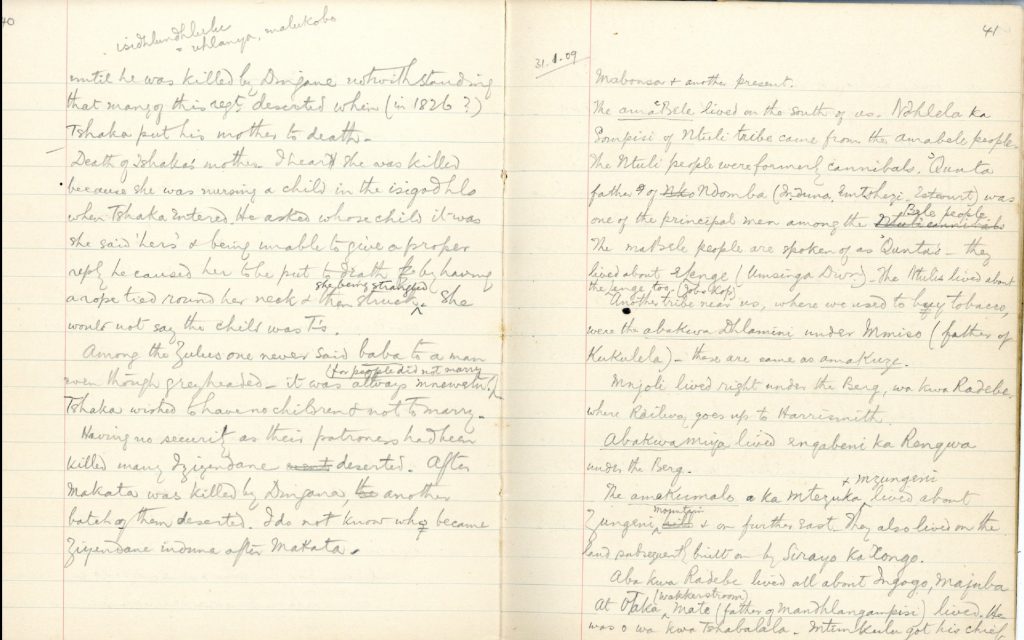 40
isidhlundhlutu
= uhlanya, malukobo
until he was killed by Dingane notwithstanding
that many of this regt. deserted when (in 1826?)
Tshaka put his mother to death.
Death of Tshaka's mother. I heard she was killed
because she was nursing a child in the isigodhlo
when Tshaka entered. He asked whose child it was
She said 'hers' & being unable to give a proper
reply he caused her to be put to death by having
she being strangled
a rope tied round her neck & then struck. She
would not say the child was T's.
Among the Zulus one never said baba to a man
(for people did not marry
even though greyheaded - it was always mnewetu.
Tshaka wished to have no children & not to marry.
Having no security as their patroness had been
killed many Iziyendane went deserted. After
Makata was killed by Dingana the another
batch of them deserted. I do not know who became
Ziyendane induna after Makata.
41
31.1.09
Mabonsa & another present.
The amaBele lived on the south of us. Ndhlela ka
Sompisi of Ntuli tribe came from the amabele people.
The Ntuli people were formerly cannibals. Qunta
father of Nko Ndomba (Induna, Emtshezi, Estcourt) was
Bele people.
one of the principal men among the Ntuli cannibals
The maBele people are spoken of as Quntas - they
lived about eJenge (Umsinga Divn). The Ntulis lived about
the Jenge too. (Jobs Kop)
Another tribe near us, where we used to buy tobacco,
were the abakwa Dhlamini under Mmiso (father of
Kukulela) - these are same as amakuze.
Mnjoli lived right under the Berg, wa kwa Radebe
where Railway goes up to Harrismith.
Abakwa miya lived engabeni ka Rengwa
under the Berg.
& mzungeni
The amakumalo a ka Mtezuka lived about
mountain
Zungeni hill & on further East. They also lived on the
land subsequently built on by Sirayo ka Xongo.
Aba kwa Radebe lived all about Ingogo, Majuba
(Wakkerstroom)
At Mate (father of Mandhlangampisi) lived. He
was o wa kwa Tshabalala. Mtimkulu got his chief